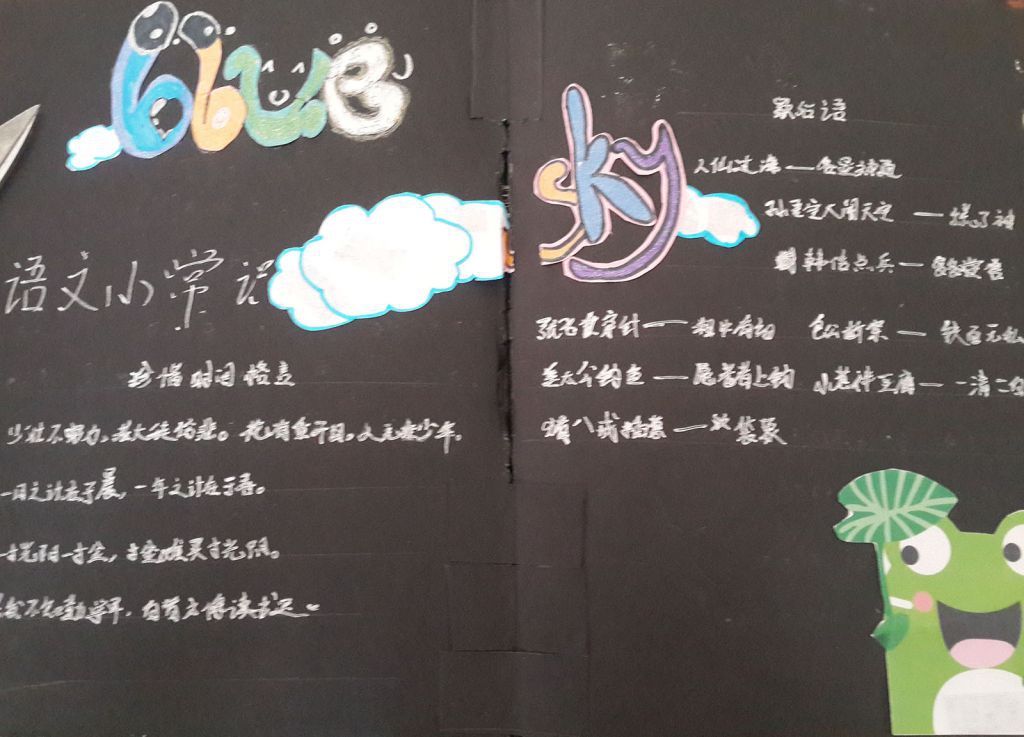 blue
sky
语文小常识
珍惜时间格言
少壮不努力,老大徒伤悲。花有重开日,人无再少年。
一日之计在于晨,一年之计在于春。
一寸光阴一寸金,寸金难买寸光阴。
不知勤学早,白首方悔读书迟
歇后语
八仙过海——各显神通
孙悟空大闹天宫——慌了神
韩信点兵——多多益善
张飞穿针——粗中有细 包公断案——铁面无私
姜太公钓鱼——愿者上钩 小葱拌豆腐——一清二
猪八戒